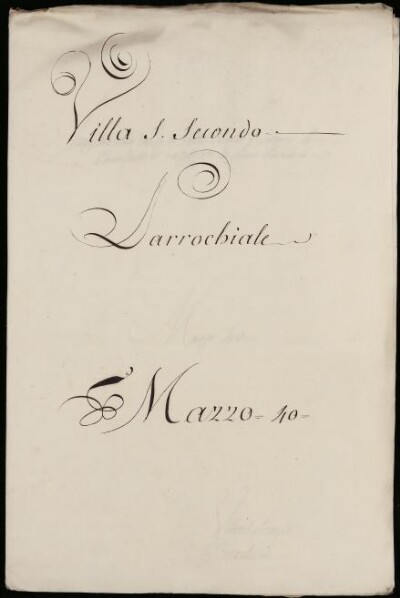 Villa S. Secondo
Parrochiale
Mazzo = 40 =